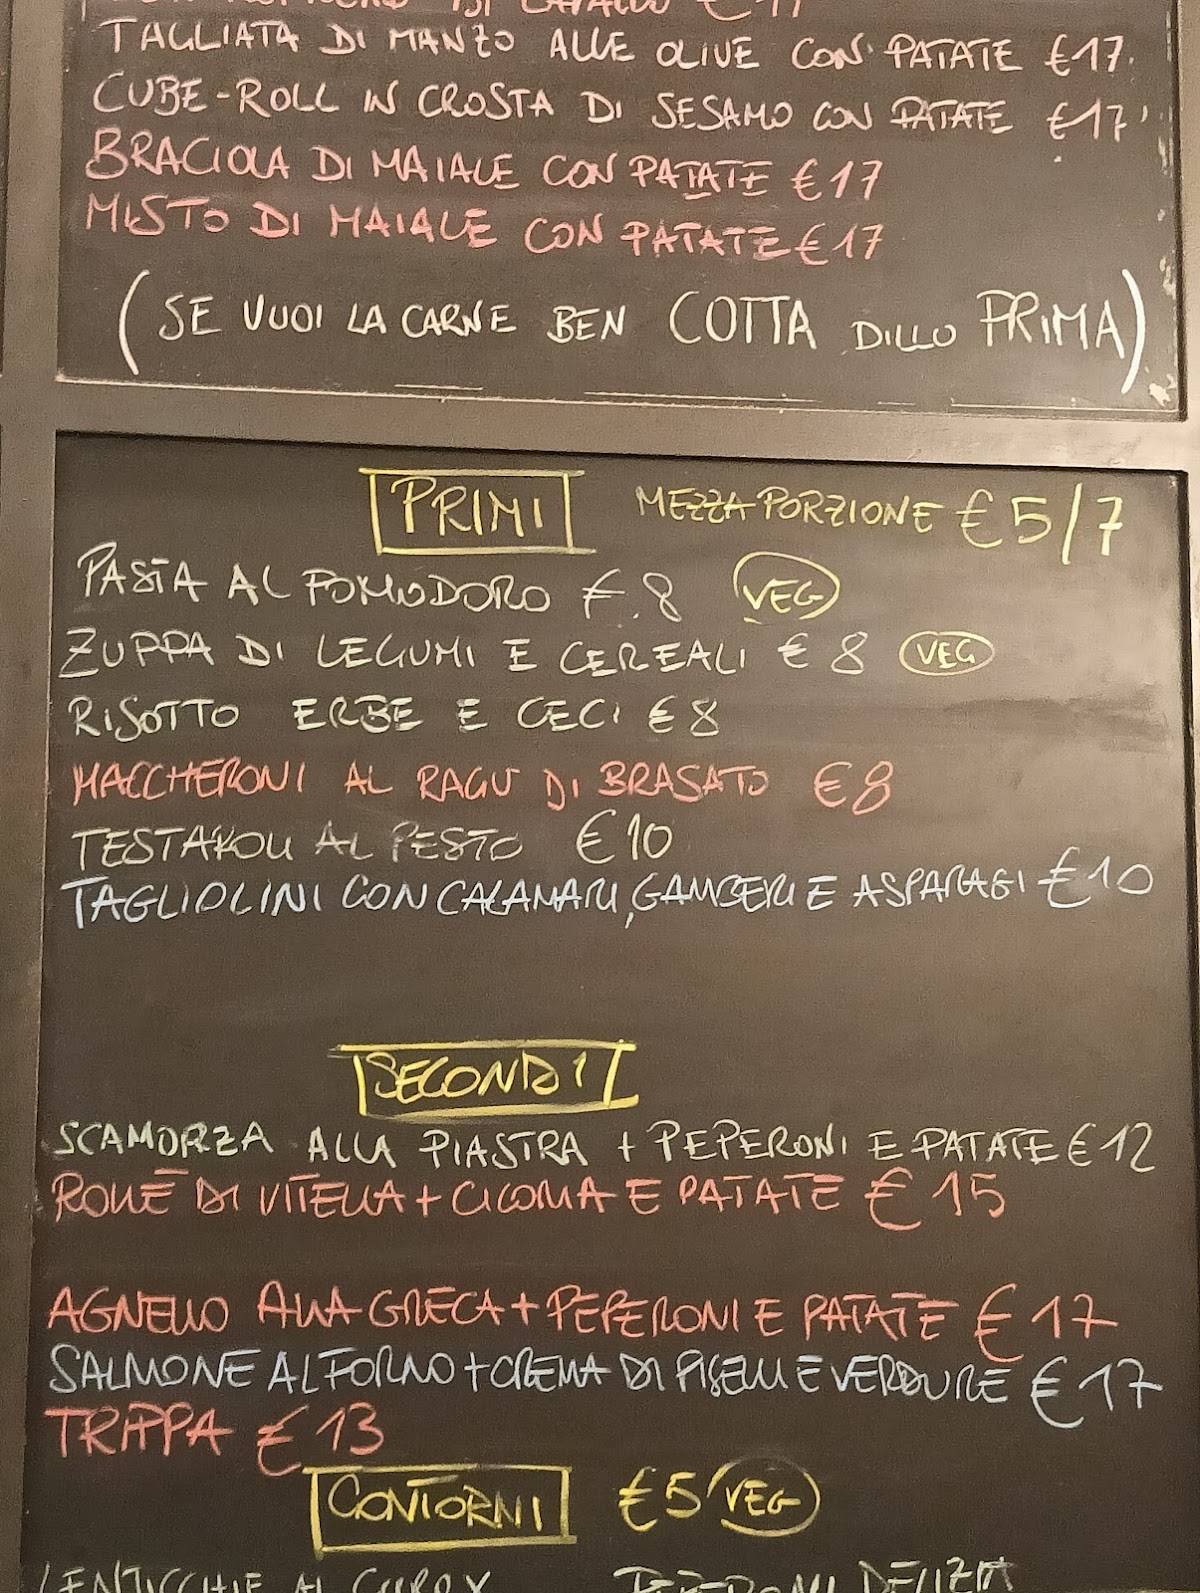 DI CAVALLO €17
TAGLIATA DI MANZO ALLE OLIVE CON PATATE €17
CUBE-ROLL IN CROSTA DI SESAMO CON PATATE €17
BRACIOLA DI MAIALE CON PATATE €17
MISTO DI MAIALE CON PATATE €17
(SE VUOI LA CARNE BEN COTTA DILLO PRIMA)
PRIMI MEZZA PORZIONE €5/7
PASTA AL POMODORO €8 VEG
ZUPPA DI LEGUMI E CEREALI €8 VEG
RISOTTO ERBE E CECI €8
MACCHERONI AL RAGU DI BRASATO €8
TESTAROLI AL PESTO €10
TAGLIOLINI CON CALAMARI, GAMBERI E ASPARAGI €10
SECONDI
SCAMORZA ALLA PIASTRA + PEPERONI E PATATE €12
ROLLĒ DI VITELLA + CICORIA E PATATE €15
AGNELLO ALLA GRECA + PEPERONI E PATATE €17
SALMONE AL FORNO + CREMA DI PISELLI E VERDURE €17
TRIPPA €13
CONTORNI €5 VEG
LENTICCHIE AL CURRY PEPERONI DELIZIA